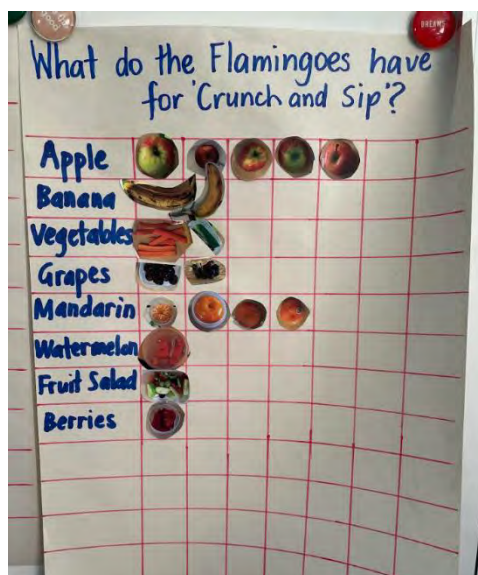 good
DREAMS
What do the Flamingoes have
for 'Crunch and Sip'?
Apple
Banana
Vegetables
Grapes
Mandarin
Watermelon
Fruit Salad
Berries